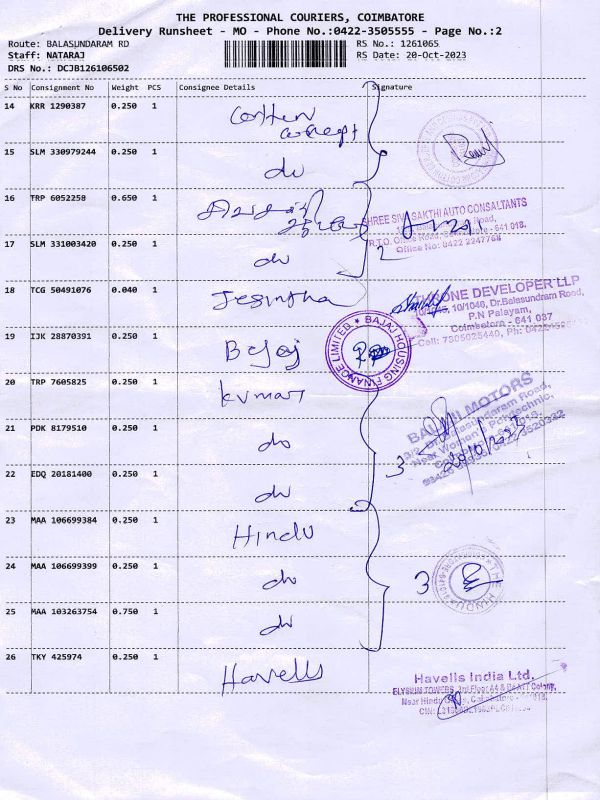 THE PROFESSIONAL COURIERS, COIMBATORE
Delivery Runsheet - MO - Phone No.:0422-3505555 - Page No.:2
Route: BALASUNDARAM RD
RS No.: 1261065
Staff: NATARAJ
RS Date: 20-Oct-2023
DRS No.: DCJB126106502
S No Consignment No Weight PCS Consignee Details Signature
14 KRR 1290387 0.250 1 Cotton
concept
15 SLM 330979244 0.250 1 do
16 TRP 6052258 0.650 1
SHREE SIVA SAKTHI AUTO CONSULTANTS
R.T.O. Office Road, Coimbatore - 641 018.
Office No: 0422 2247768
17 SLM 331003420 0.250 1 do 2
18 TCG 50491076 0.040 1 Jesintha
ONE DEVELOPER LLP
10/1045, 10/1046, Dr.Balasundram Road,
P.N Palayam,
Coimbatore - 641 037
Cell: 7305025440, Ph:
19 IJK 28870391 0.250 1 Bajaj
BAJAJ HOUSING FINANCE LIMITED
20 TRP 7605825 0.250 1 kumar
BALAJI MOTORS
Dr. Balasundaram Road,
Near Women's Polytechnic,
21 PDK 8179510 0.250 1 do
3
22 EDQ 20181400 0.250 1 do
23 MAA 106699384 0.250 1 Hindu
24 MAA 106699399 0.250 1 do 3
THE HINDU
25 MAA 103263754 0.750 1 do
26 TKY 425974 0.250 1 Havells
Havells India Ltd.
ELYSIUM TOWERS, 3rd Floor